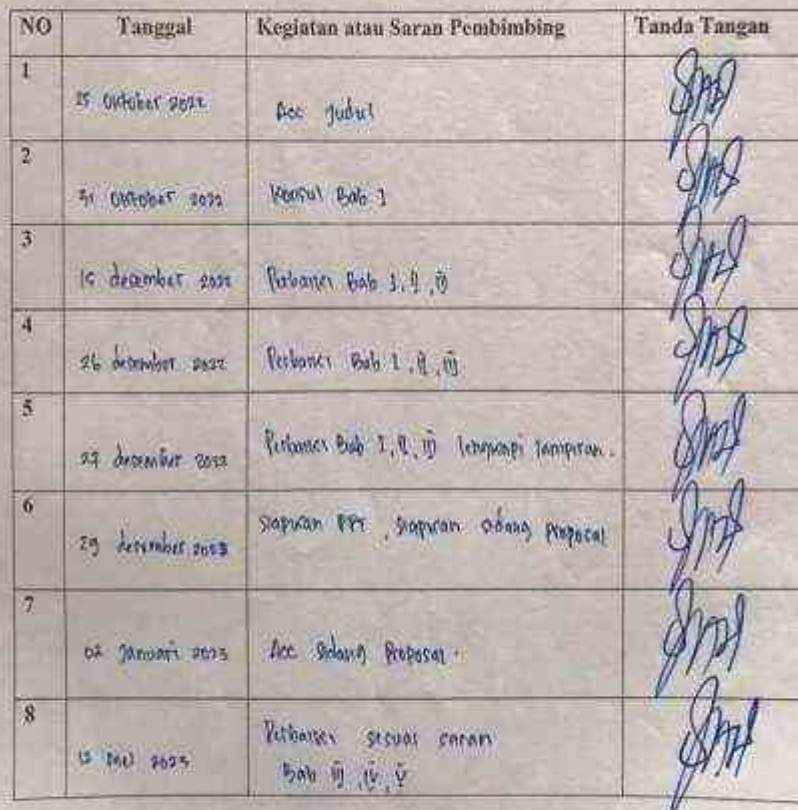 NO Tanggal Kegiatan atau Saran Pembimbing Tanda Tangan
1
25 Oktober 2022 Acc Judul
2
31 Oktober 2022 Konsul Bab I
3
desember 2022 Perbaiki Bab I, II, III
4
26 desember 2022 Perbaiki Bab I, II, III
5
27 desember 2022 Perbaiki Bab I, II, III lengkapi lampiran.
6
29 desember siapkan PPT, siapkan sidang proposal
7
02 Januari 2023 Acc Sidang Proposal.
8
Perbaiki sesuai saran
12 Mei 2023 Bab III, IV, V